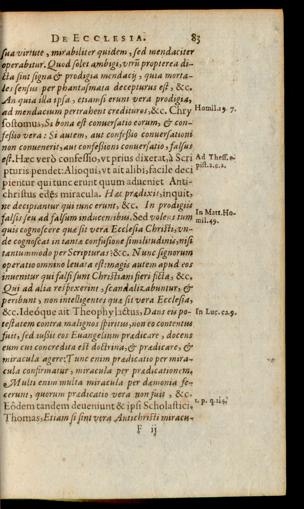 DE ECCLESIA. 83
sua virtute, mirabiliter quidem, sed mendaciter
operabitur. Quod solet ambigi, vtrũ propterea di-
cta sint signa & prodigia mendacij, quia morta-
les sensus per phantasmata decepturus est, &c.
An quia illa ipsa, etiamsi erunt vera prodigia,
ad mendacium pertrahent credituros, &c. Chry Homil.19. 7.
sostomus, Si bona est conuersatio eorum, & con-
fessio vera: Si autem, aut confessio conuersationi
non conuenerit, aut confessioni conuersatio, falsus
est. Hæc verò confessio, vt prius dixerat, à Scri Ad Thess.
pturis pendet: Alioqui, vt ait alibi, facile deci pist.2.c.2.
pientur qui tunc erunt quum adueniet Anti-
christus edẽs miracula. Hæc prædixit, inquit,
ne decipiantur qui tunc erunt, &c. In prodigiis
falsis seu ad falsum inducentibus. Sed volens tum In Matt.Ho.
qui cognoscere quæ sit vera Ecclesia Christi, vn- mil.49.
de cognoscat in tanta confusione similitudinis, nisi
tantummodo per Scripturas? &c. Nunc signorum
operatio omnino leuata est: magis autem apud eos
inuenitur qui falsi sunt Christiani fieri ficta, &c.
Qui ad alia respexerint, scandalizabuntur, &
peribunt, non intelligentes quæ sit vera Ecclesia,
&c. Ideóque ait Theophylactus, Dans eis po- In Luc. ca.9.
testatem contra malignos spiritus, non eo contentus
fuit, sed iussit eos Euangelium prædicare, docens
eum cui concredita est doctrina, & prædicare, &
miracula agere: Tunc enim prædicatio per mira-
cula confirmatur, miracula per prædicationem.
Multi enim multa miracula per dæmonia fe-
cerunt, quorum prædicatio vera non fuit, &c.
Eódem tandem deueniunt & ipsi Scholastici, 1. p. q.114.
Thomas, Etiam si sint vera Antichristi miracu-
F ij